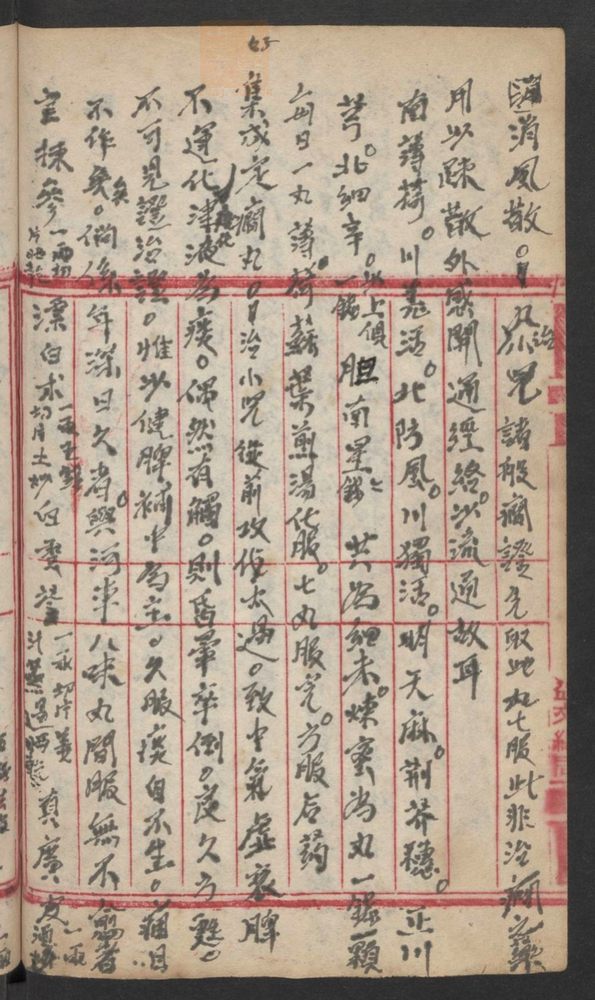 消風散。凡治小兒諸般癇證先服此丸七服此非治癇之藥
用以疎散外感開通經絡。以流通故耳
南薄荷。川羌活。北防風。川獨活。明天麻。荊芥穗。正川
芎。北細辛。以上俱一錢 胆南星二錢 共為細末。煉蜜為丸一錢一顆
每日一丸薄荷蘇葉煎湯化服。七丸服完。方服后葯
集成定癇丸。治小兒從前攻伐太過。致中氣虛衰脾
不運化津液為痰。偶然有觸。則昏暈卒倒。良久方甦。
不可見證治證。惟以健脾補中為主。久服痰自不生。癇自
不作矣。倘係年深日久者。與河車八味丸間服無不驗者
官揀參一兩切片 漂白朮一兹五錢切片土炒 白雲苓一兩切片姜汁蒸 真廣皮一兩酒炒